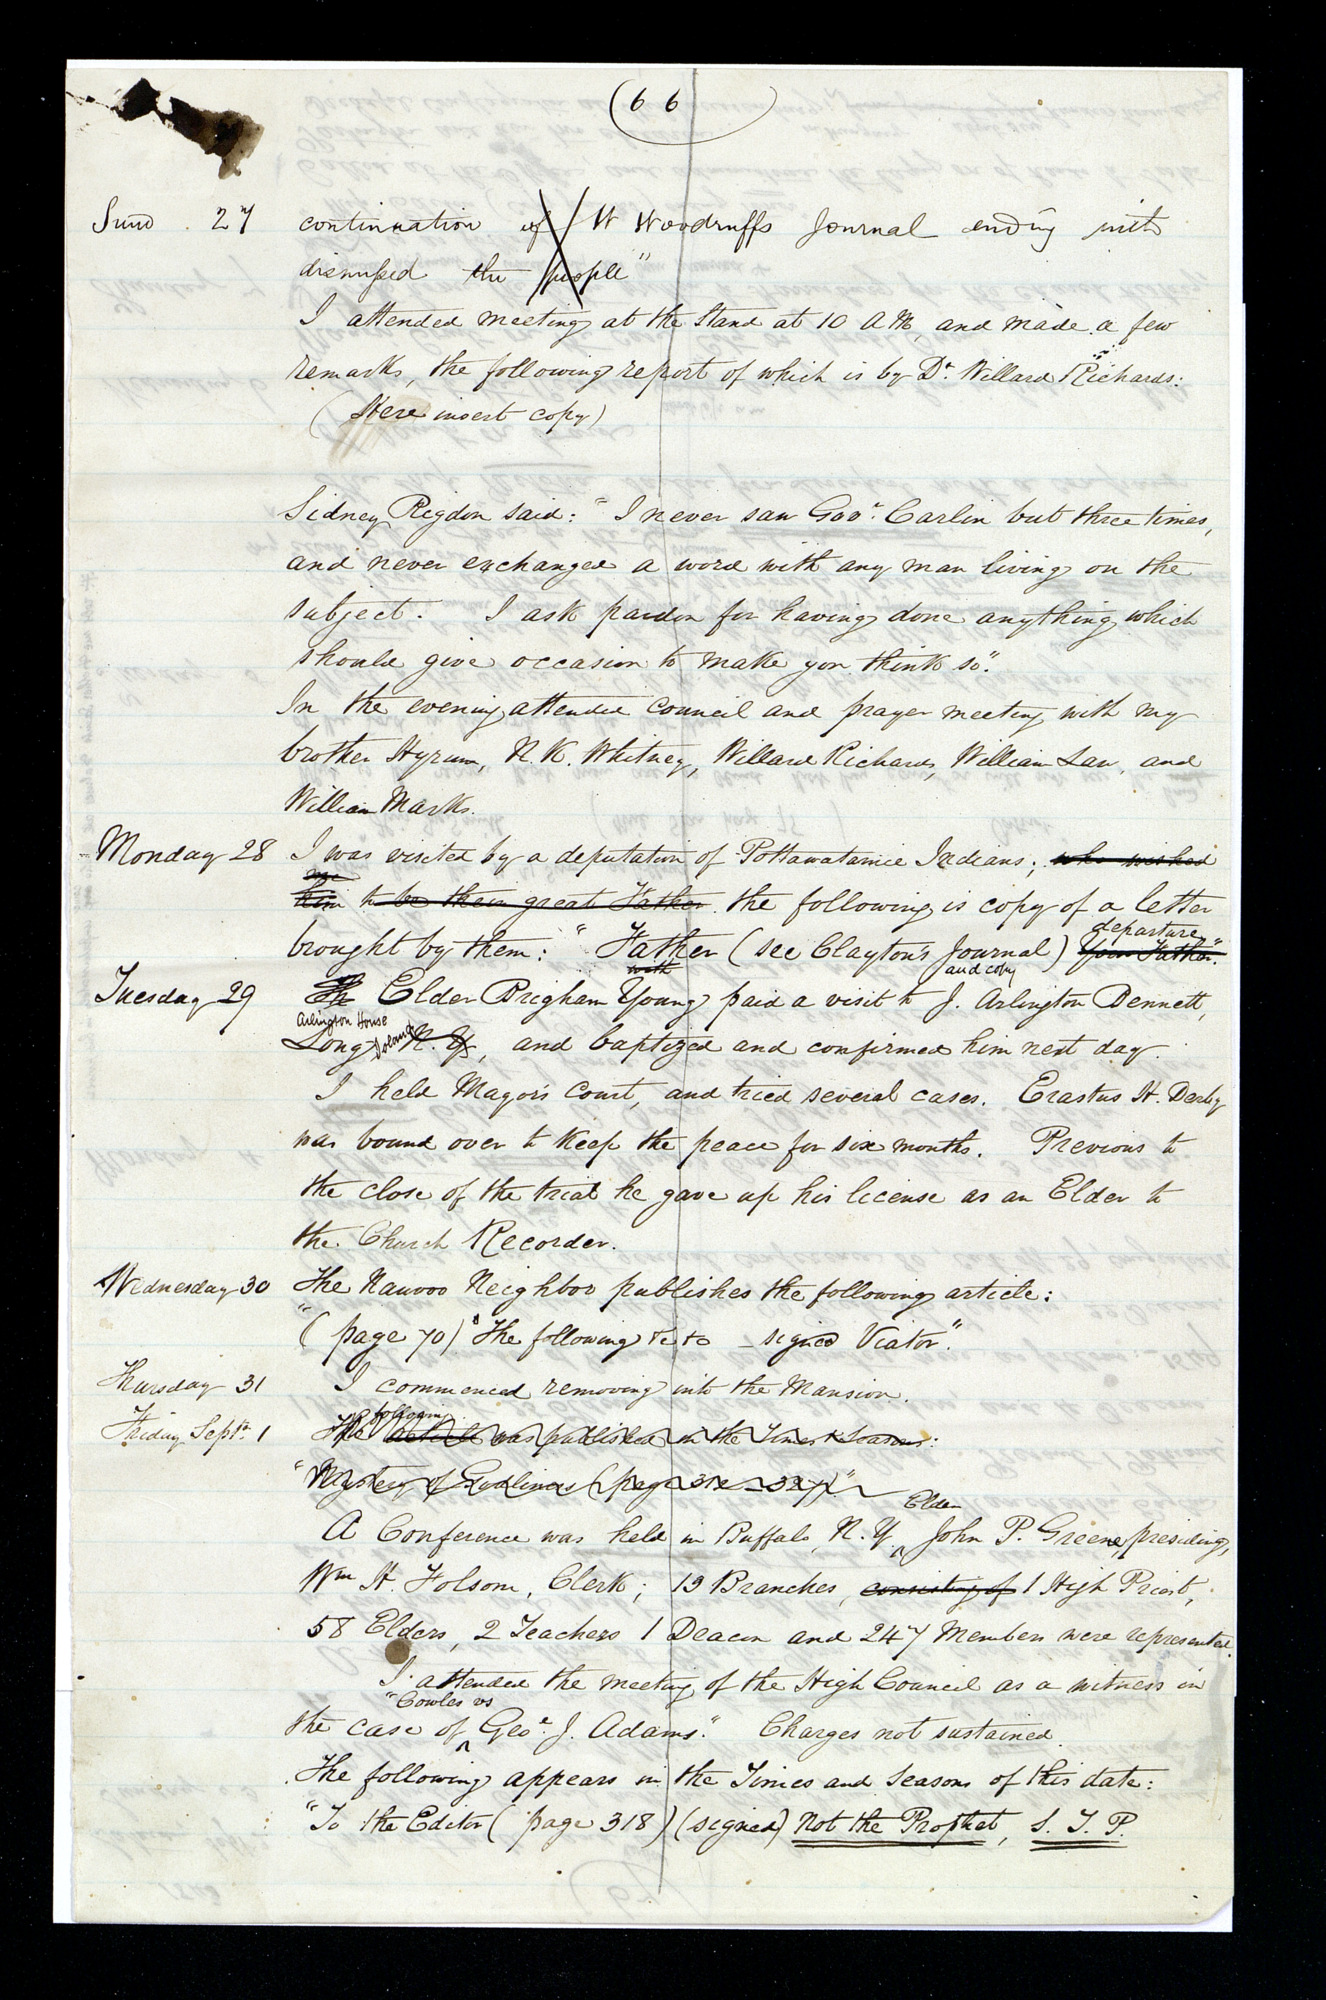 (66)
Sund. 27 continuation of W Woodruffs Journal ending with
dismissed the people"
I attended meeting at the Stand at 10 A M, and made a few
remarks, the following report of which is by Dr. Willard Richards:
(Here insert copy)
Sidney Rigdon said: "I never saw Gov.r Carlin but three times,
and never exchanged a word with any man living on the
subject. I ask pardon for having done anything which
should give occasion to make you think so."
In the evening attended council and prayer meeting with my
brother Hyrum, N. K. Whitney, Willard Richards, William Law, and
William Marks.
Monday 28 I was visited by a deputation of Pottawatamie Indians; who wished
me
him to be their great Father. the following is copy of a letter
departure
brought by them: "Father (see Clayton's Journal) Your Father".
with and copy
Tuesday 29 The Elder Brigham Young paid a visit to J. Arlington Bennett,
Arlington House
Long Island N. Y., and baptized and confirmed him next day.
I held Mayor's Court, and tried several cases. Erastus H. Derby
was bound over to keep the peace for six months. Previous to
the close of the trial he gave up his license as an Elder to
the Church Recorder.
Wednesday 30 The Nauvoo Neighbor publishes the following article:
"(page 70) "The following &c to — signed Viator".
Thursday 31 I commenced removing into the Mansion.
followg
Friday Sept. 1 The article was published in the Times & Seasons:
"Mystery of Godliness (page 312 — 327)"
Elder
A Conference was held in Buffalo, N. Y. ^ John P. Greene, presiding,
Wm H. Folsom, Clerk; 13 Branches, consisting of 1 High Priest,
58 Elders, 2 Teachers 1 Deacon and 247 Members were represented.
I attended the meeting of the High Council as a witness in
"Cowles vs
the case of ^ Geo. J. Adams." Charges not sustained.
The following appears in the Times and Seasons of this date:
"To the Editor (page 318) (signed) Not the Prophet, S. T. P.